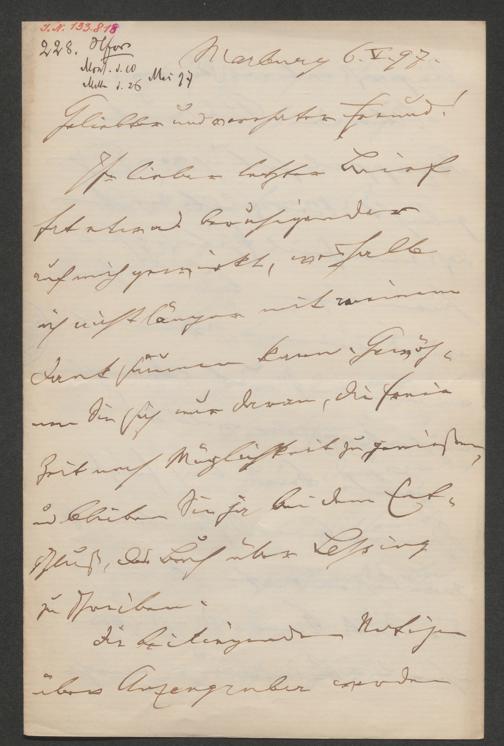 I.N. 193.818
228.
Mai 97
Marburg 6. V. 97.
Geliebter und verehrter Freund!
Ihr lieber letzter Brief
hat etwas beruhigender
auf mich gewirkt, weshalb
ich nicht länger mit meinem
Dank säumen kann. Gewöh-
nen Sie sich nur daran, die freie
Zeit nach Möglichkeit zu genießen,
u bleiben Sie ja bei dem Ent-
schluß, das Buch über Lessing
zu schreiben.
Die beiliegenden Notizen
über Anzengruber werden